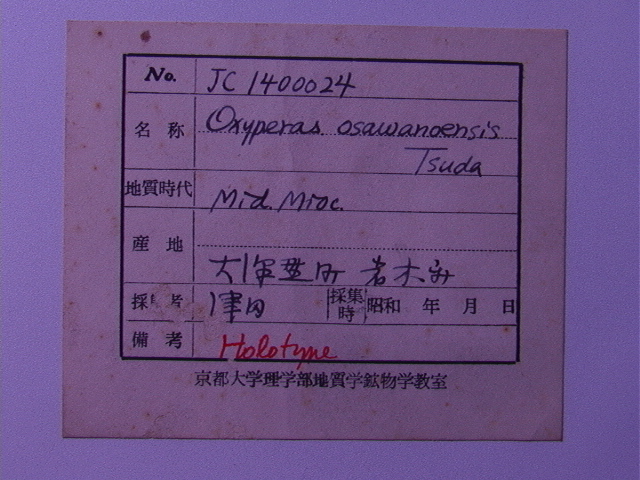 No. JC 1400024
名称 Oxyperas osawanoensis
Tsuda
地質時代 Mid. Mioc.
産地
大澤野町 岩木新
採集者 津田 採集時 昭和 年 月 日
備考 Holotype
京都大学理学部地質学鉱物学教室